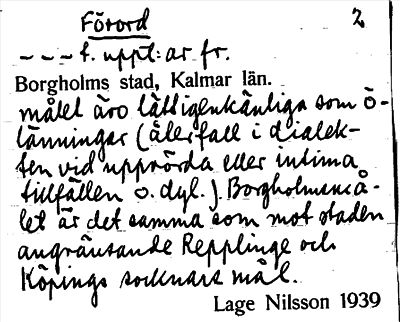 Förord 2
--- f. uppt: ar fr.
Borgholms stad, Kalmar län.
målet äro lättigenkänliga som ö-
länningar (återfall i dialek-
ten vid upprörda eller intima
tillfällen o. dyl.). Borgholmsmå-
let är det samma som mot staden
angränsande Repplinge och
Köpings socknars mål.
Lage Nilsson 1939